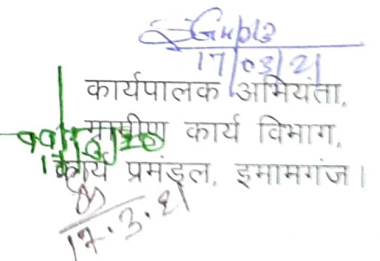 17/03/21
कार्यपालक अभियंता,
ग्रामीण कार्य विभाग,
कार्य प्रमंडल, इमामगंज।
17.3.21